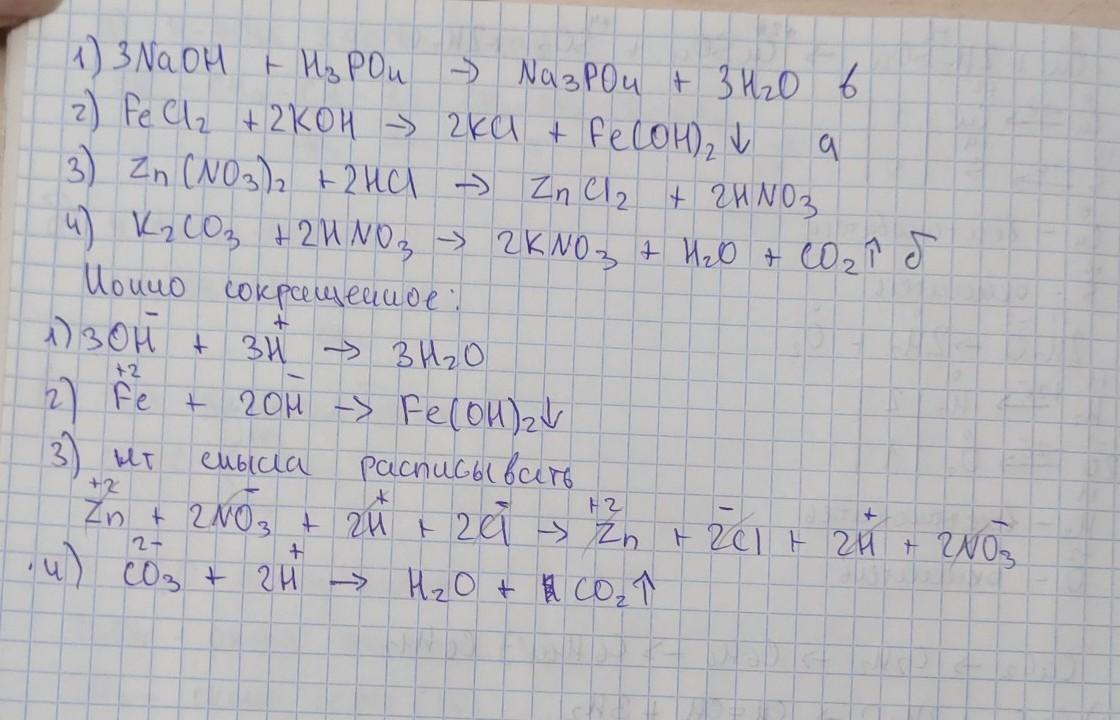 1) 3NaOH + H₃PO₄ → Na₃PO₄ + 3H₂O в
2) FeCl₂ + 2KOH → 2KCl + Fe(OH)₂↓ а
3) Zn(NO₃)₂ + 2HCl → ZnCl₂ + 2HNO₃
4) K₂CO₃ + 2HNO₃ → 2KNO₃ + H₂O + CO₂↑ б
Ионно сокращенное:
1) 3OH⁻ + 3H⁺ → 3H₂O
2) Fe⁺² + 2OH⁻ → Fe(OH)₂↓
3) нт смысла расписывать
Zn⁺² + 2NO₃⁻ + 2H⁺ + 2Cl⁻ → Zn⁺² + 2Cl⁻ + 2H⁺ + 2NO₃⁻
4) CO₃²⁻ + 2H⁺ → H₂O + CO₂↑